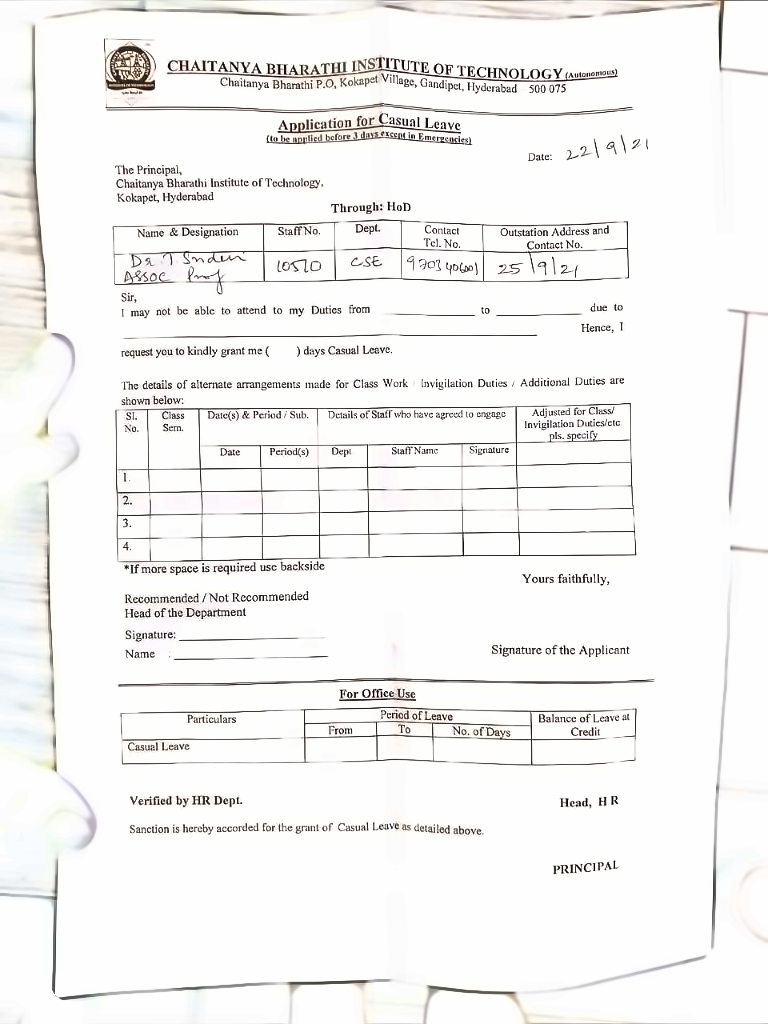 CHAITANYA BHARATHI INSTITUTE OF TECHNOLOGY (Autonomous)
Chaitanya Bharathi P.O, Kokapet Village, Gandipet, Hyderabad 500 075
Application for Casual Leave
(to be applied before 3 days except in Emergencies)
Date: 22/9/21
The Principal,
Chaitanya Bharathi Institute of Technology,
Kokapet, Hyderabad
Through: HoD
Name & Designation Staff No. Dept. Contact Tel. No. Outstation Address and Contact No.
Dr. T
Assoc Prof 10510 CSE 25/9/21
Sir,
I may not be able to attend to my Duties from ____________ to ____________ due to
____________ Hence, I
request you to kindly grant me ( ) days Casual Leave.
The details of alternate arrangements made for Class Work / Invigilation Duties / Additional Duties are
shown below:
Sl. No. Class Sem. Date(s) & Period / Sub. Details of Staff who have agreed to engage Adjusted for Class/ Invigilation Duties/etc pls. specify
Date Period(s) Dept Staff Name Signature
1.
2.
3.
4.
*If more space is required use backside
Yours faithfully,
Recommended / Not Recommended
Head of the Department
Signature: ____________
Name : ____________
Signature of the Applicant
For Office Use
Particulars Period of Leave Balance of Leave at Credit
From To No. of Days
Casual Leave
Verified by HR Dept. Head, H R
Sanction is hereby accorded for the grant of Casual Leave as detailed above.
PRINCIPAL